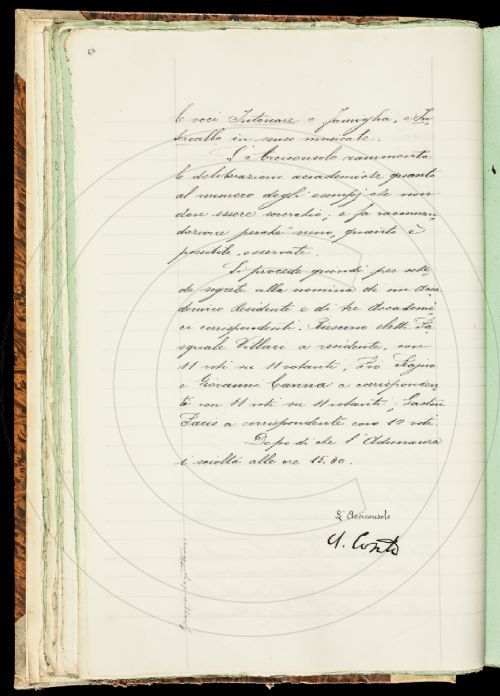 le voci Intonare e famiglia, e In-
tervallo in senso musicale.
L'Arciconsolo rammenta
le deliberazioni accademiche quanto
al numero degli esempj che non
deve essere soverchio, e fa raccoman-
dazione perchè sieno, quanto è
possibile, osservate.
Si procede quindi per sche-
de segrete alla nomina di un Acca-
demico Residente e di tre Accademi-
ci corrispondenti. Riescono eletti Pa-
squale Villari a residente, con
11 voti su 11 votanti; Pio Rajna
e Giovanni Canna a corrisponden-
te con 11 voti su 11 votanti; Gaston
Paris a corrispondente con 10 voti.
Dopo di che l'Adunanza
è sciolta alle ore 15.30.
L'Arciconsolo
A. Conti